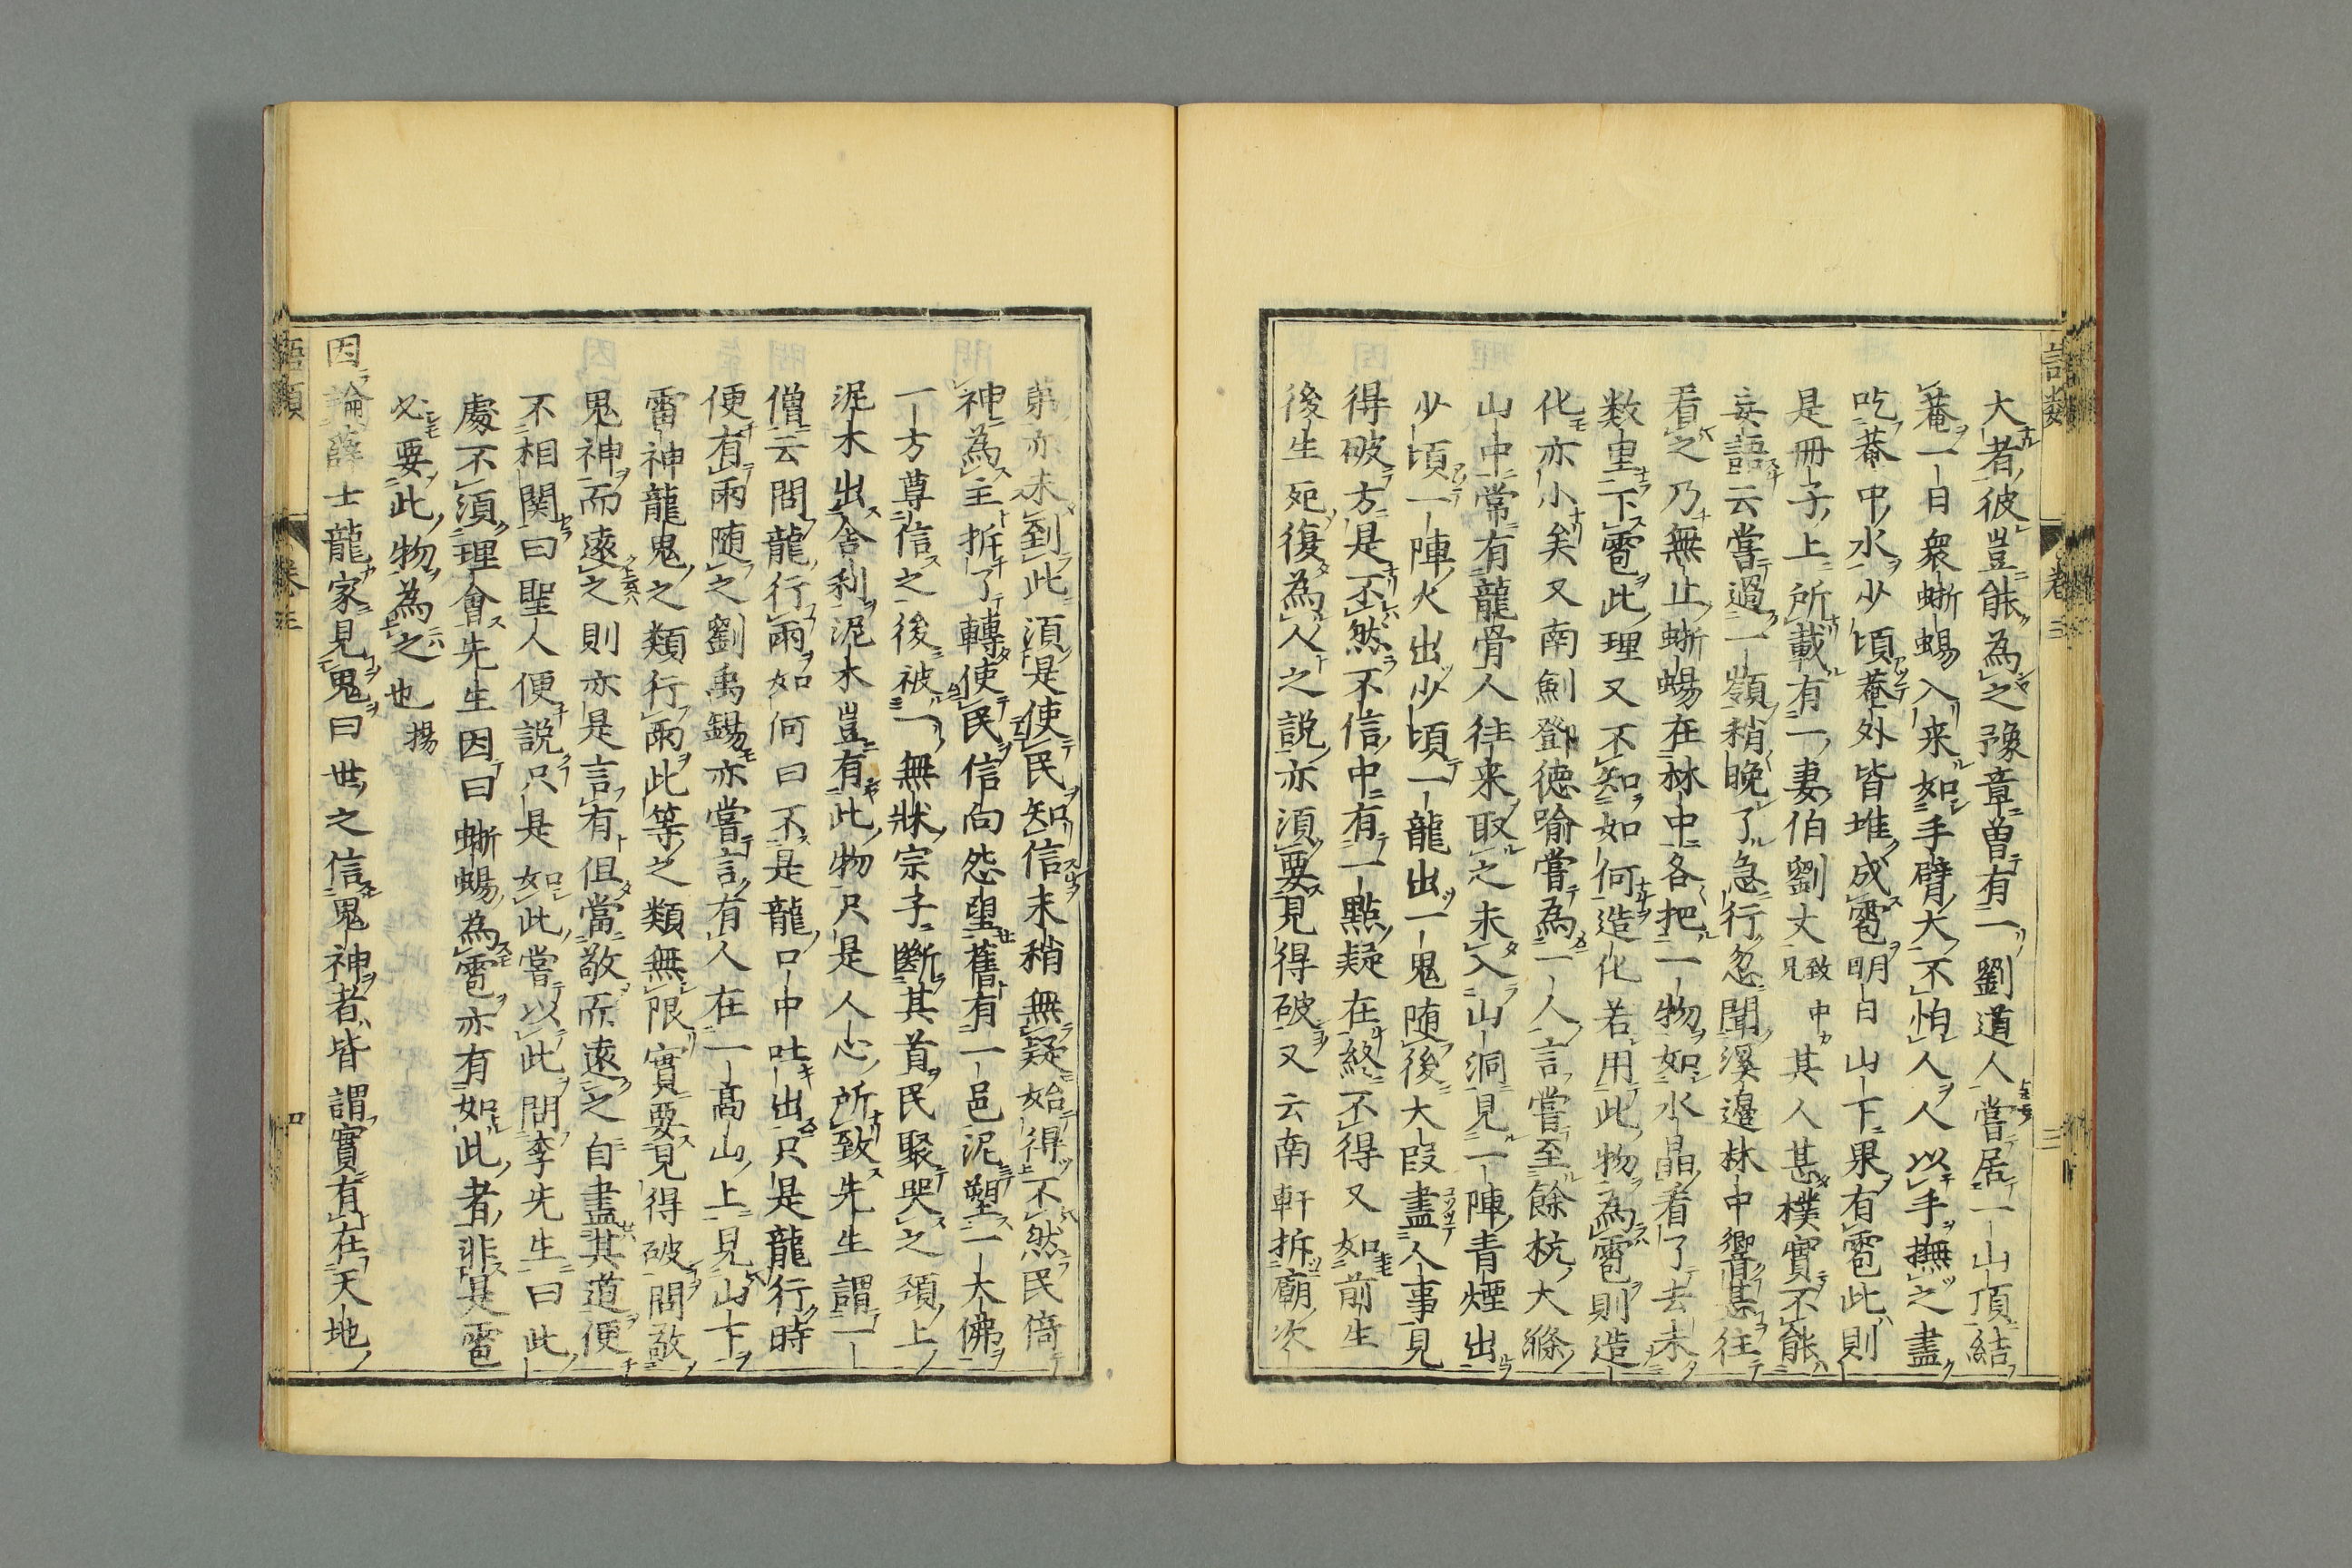 大者彼豈能為之豫章曽有一劉道人嘗居一山頂結
菴一日衆蜥蜴入来如手臂大不怕人人以手撫之盡
吃菴中水少頃菴外皆堆成雹明日山下果有雹此則
是冊子上所載有一妻伯劉丈致中兄其人甚樸實不能
妄語云嘗過一嶺稍晚了急行忽聞溪邉林中響甚往
看之乃無止蜥蜴在林中各把一物如水晶看了去未
数里下雹此理又不知如何造化若用此物為雹則造
化亦小矣又南劍鄧徳喻嘗為一人言嘗至餘杭大滌
山中常有龍骨人往来取之未入山洞見一陣青煙出
少頃一陣火出少頃一龍出一鬼随後大段盡人事見
得破方是不然不信中有一點疑在終不得又如前生
後生死復為人之説亦須要見得破又云南軒拆廟次
第亦未到此須是使民知信末稍無疑始得不然民倚
神為主拆了轉使民信向怨望舊有一邑泥塑一大佛
一方尊信之後被一無狀宗子斷其首民聚哭之頸上
泥木出舎利泥木豈有此物只是人心所致先生謂一
僧云問龍行雨如何曰不是龍口中吐出只是龍行時
便有雨随之劉禹錫亦嘗言有人在一髙山上見山下
雷神龍鬼之類行雨此等之類無限實要見得破問敬
鬼神而遠之則亦是言有但當敬而遠之自盡其道便
不相関曰聖人便説只是如此嘗以此問李先生曰此
處不須理會先生因曰蜥蜴為雹亦有如此者非是雹
必要此物為之也 揚
因論薛士龍家見鬼曰世之信鬼神者皆謂實有在天地